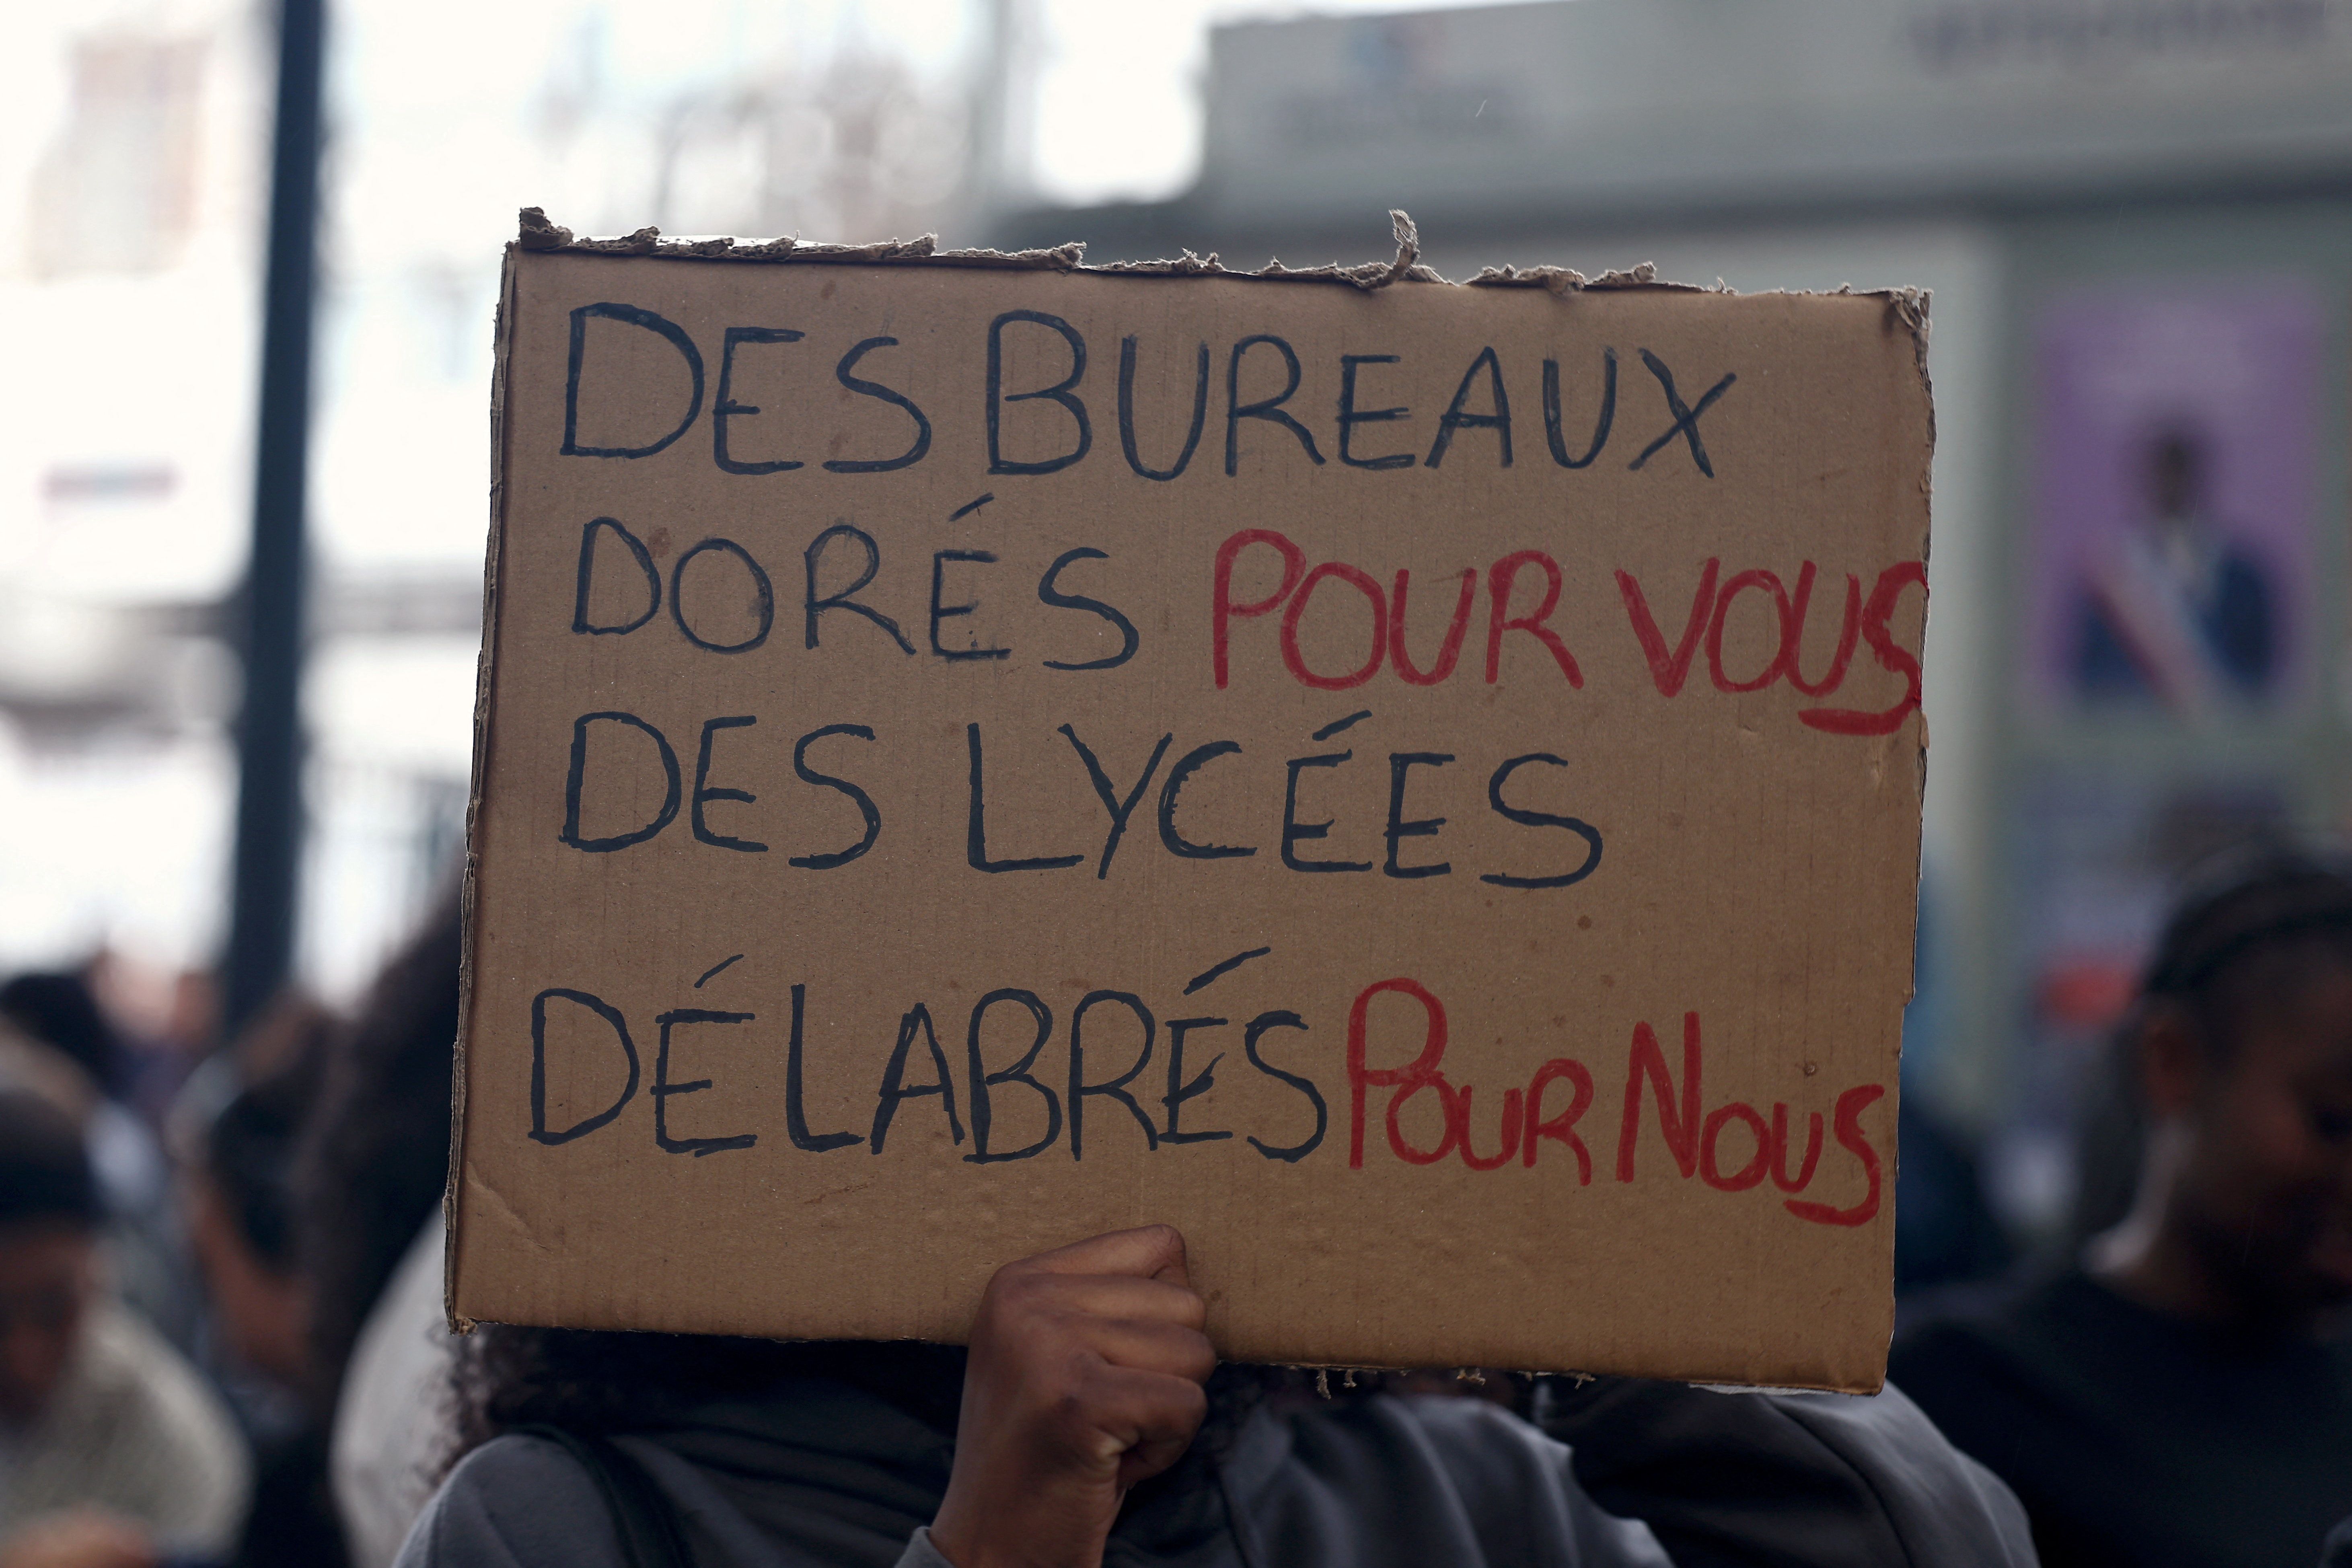 DES BUREAUX
DORÉS POUR VOUS
DES LYCÉES
DÉLABRÉS POUR NOUS